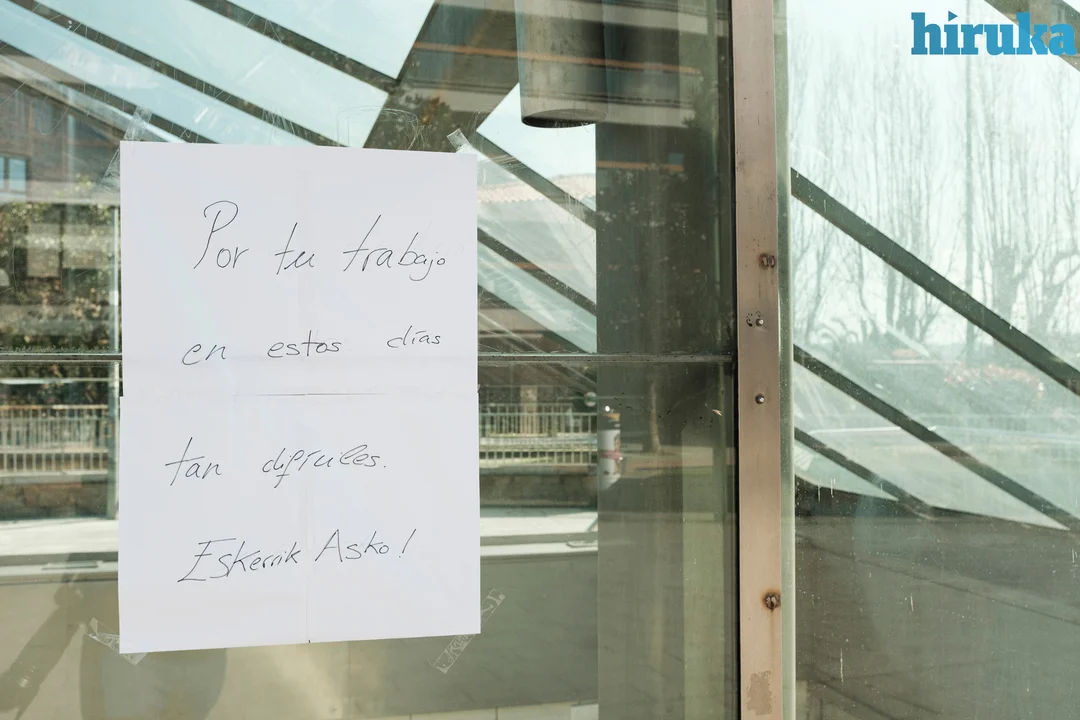 hiruka
Por tu trabajo
en estos días
tan difíciles.
Eskerrik Asko!